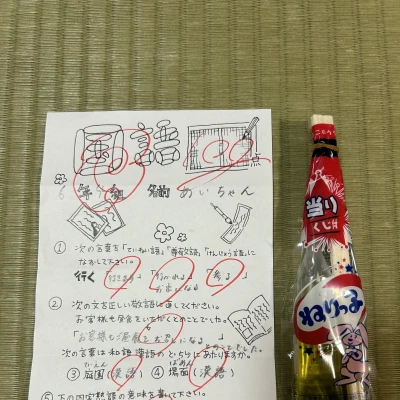 国語
100点
6年 組 名前 めいちゃん
① 次の言葉を「ていねい語」「尊敬語」「けんじょう語」に
なおして下さい。
行く「行きます」「行かれる」「参る」
② 次の文を正しい敬語に直してください。
お客様も昼食をいただくとのことでした。
「お客様もご昼食を
とのことでした。
次の言葉は和語、漢語のどちらにあたりますか。
③ 庭園(漢語) ④ 場面(漢語)
ていえん
ばめん
⑤ 下の四字熟語の意味を書いて下さい。
当り
くじ付
ねりっ子